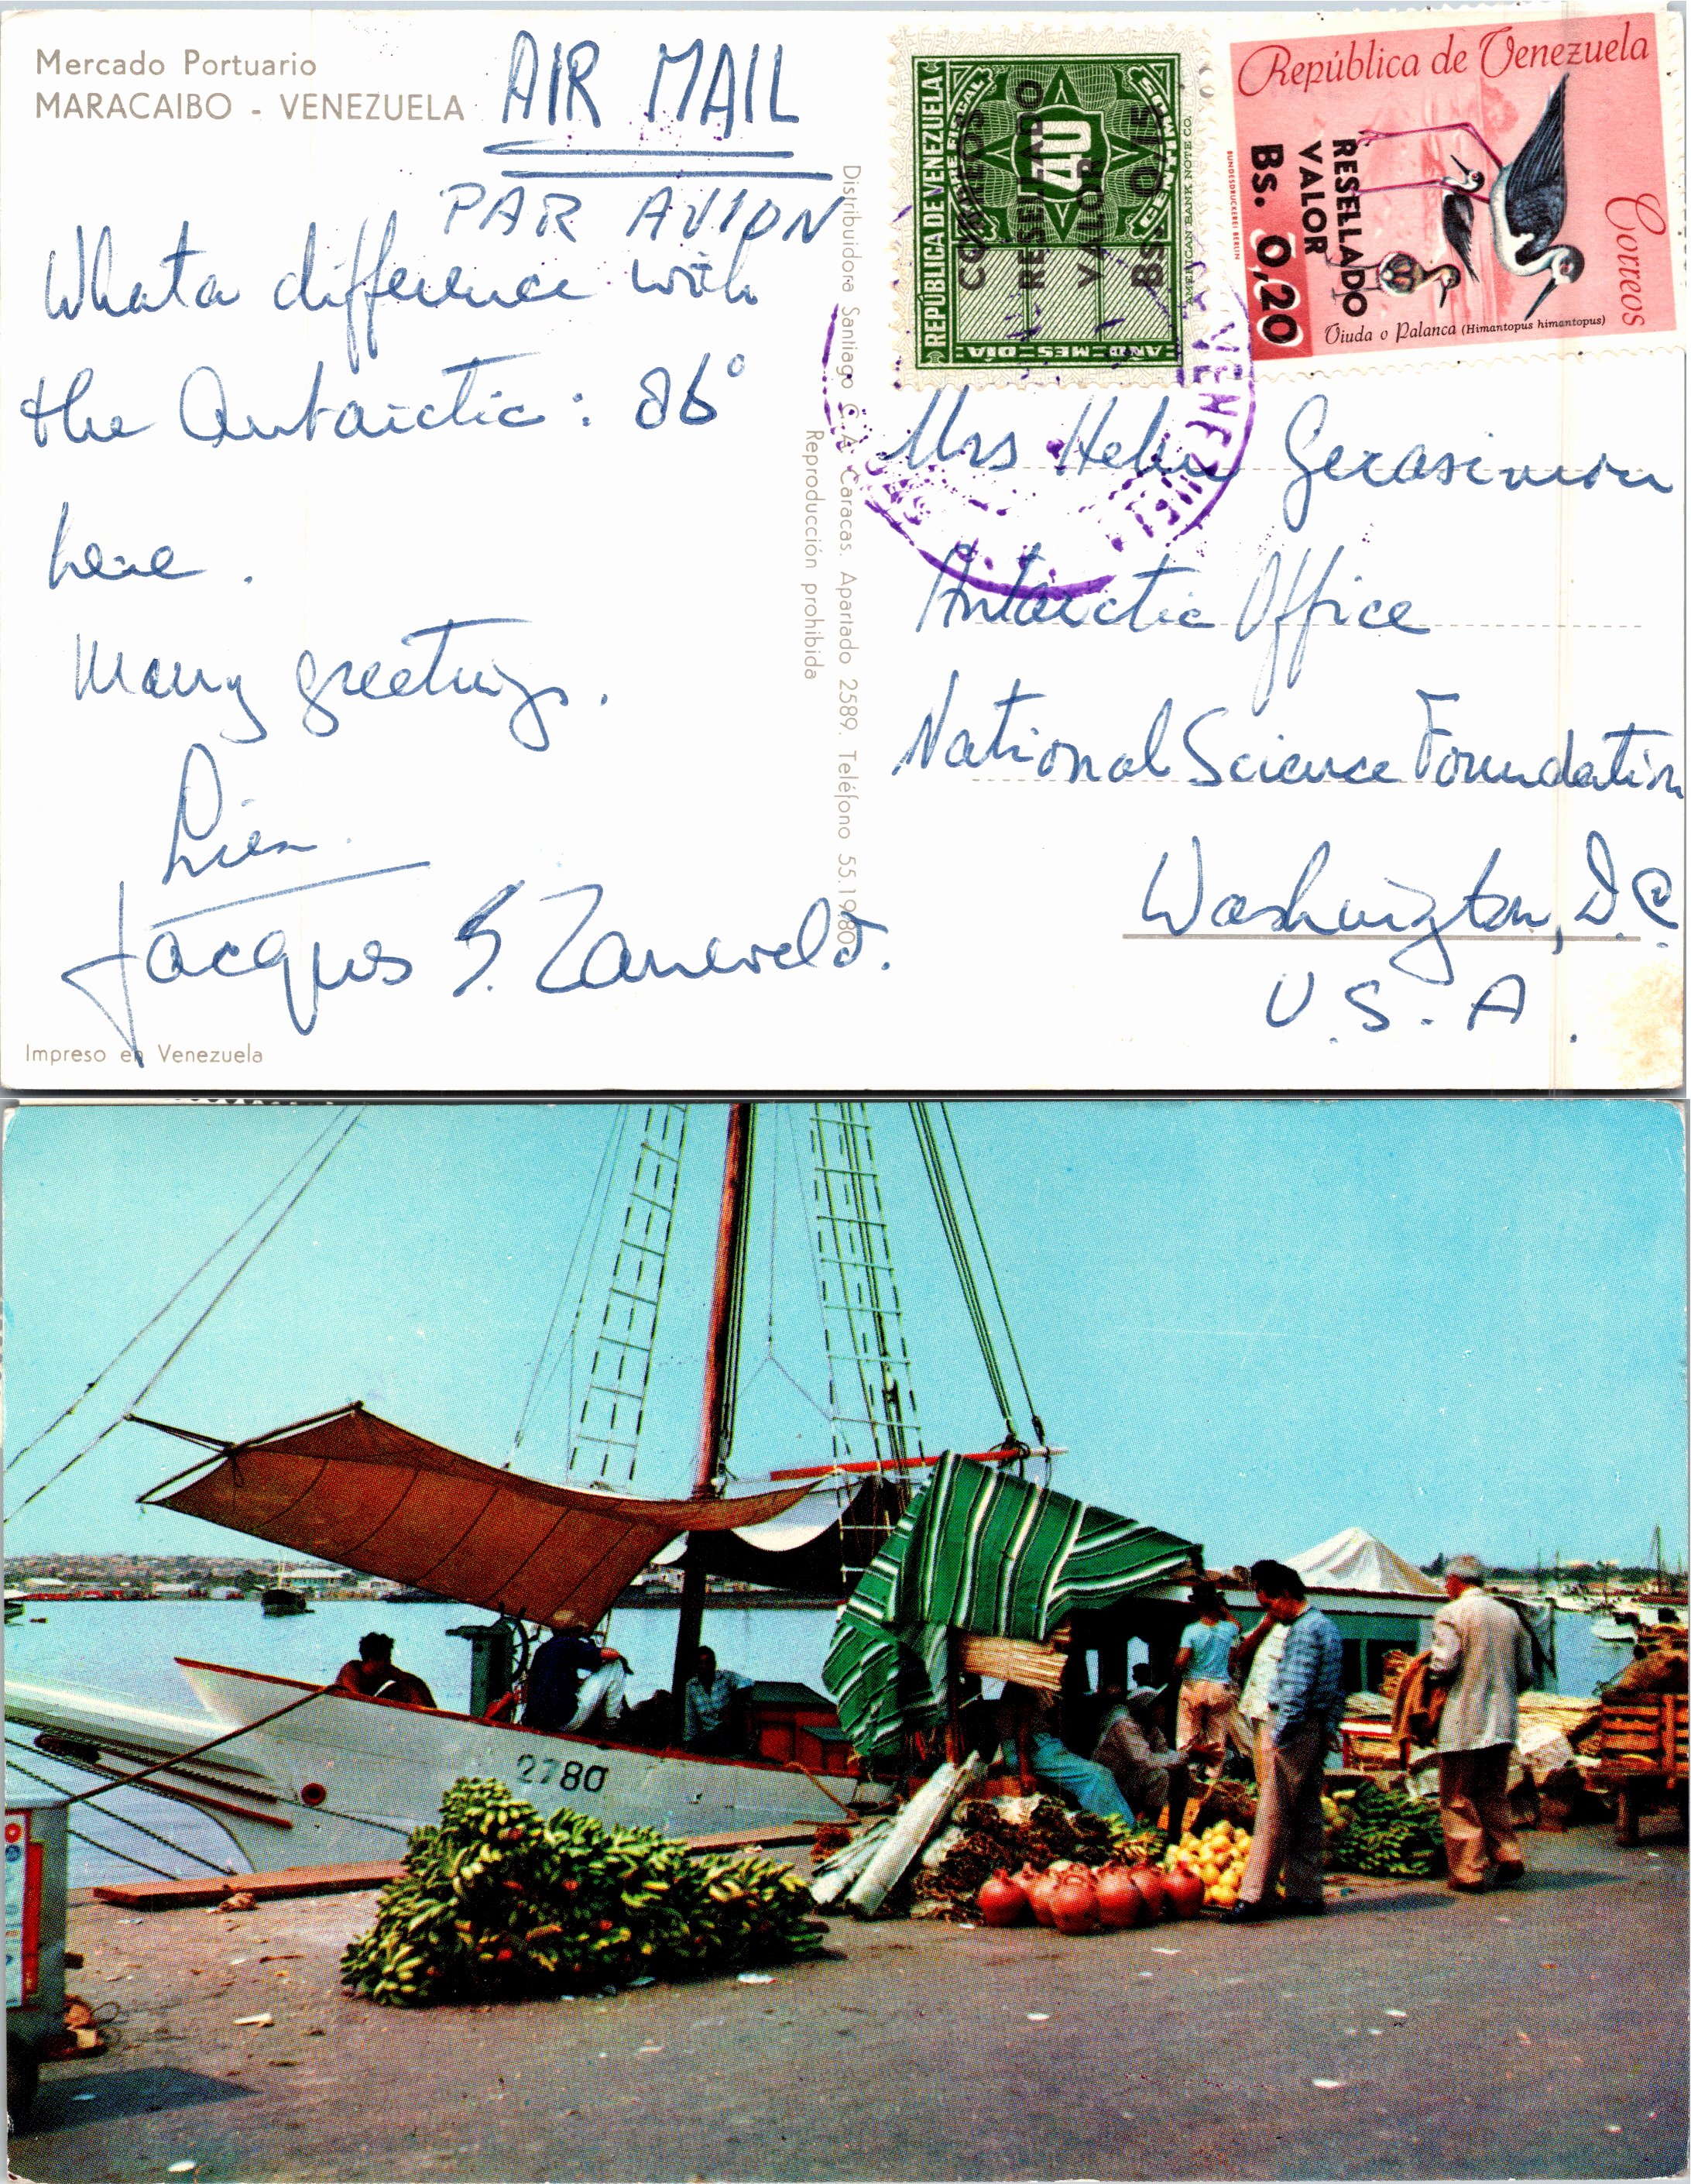 Mercado Portuario
MARACAIBO - VENEZUELA
AIR MAIL
PAR AVION
What a difference with
the Antarctic: 86°
here.
Many greetings.
Lien
Jacques S. Zaneveld.
Impreso en Venezuela
Distribuidora Santiago C. A. Caracas. Apartado 2589. Teléfono 55.19.80
Reproducción prohibida
REPÚBLICA DE VENEZUELA
TIMBRE FISCAL
40
CENTIMOS
AÑO-MES-DIA
AMERICAN BANK NOTE CO.
CORREOS
RESELLADO
VALOR
Bs. 0,15
República de Venezuela
Correos
RESELLADO
VALOR
Bs. 0,20
Viuda o Palanca (Himantopus himantopus)
BUNDESDRUCKEREI BERLIN
VENEZUELA
Mrs Helen Gerasimou
Antarctic Office
National Science Foundation
Washington, D.C.
U.S.A.
2780